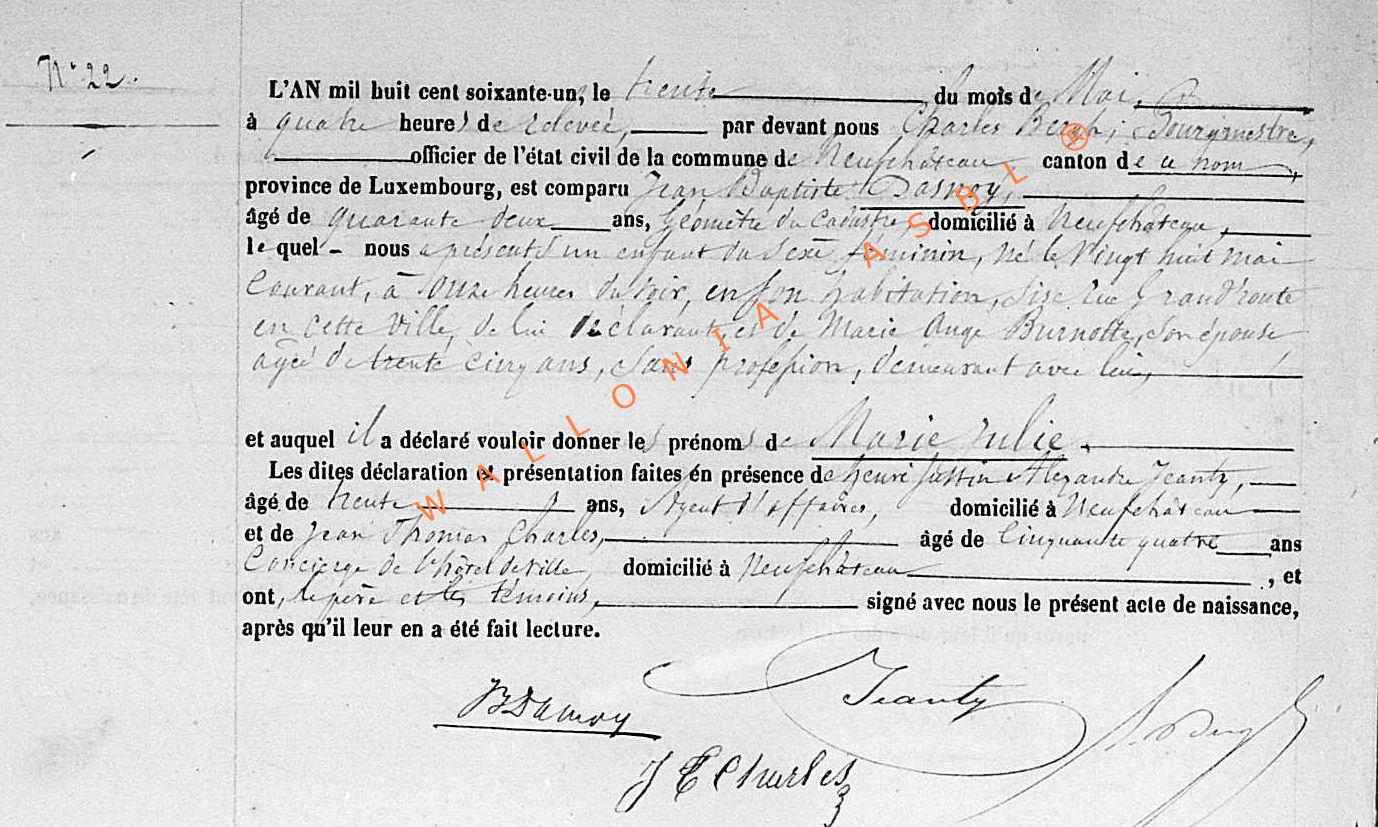 N° 22.
L'AN mil huit cent soixante-un, le trente du mois de Mai,
à quatre heures de relevée, par devant nous Charles Bergh, Bourgmestre,
officier de l'état civil de la commune de Neufchâteau, canton de ce nom,
province de Luxembourg, est comparu Jean Baptiste Dasnoy,
âgé de quarante deux ans, Géomètre du Cadastre, domicilié à Neufchâteau,
lequel - nous a présenté un enfant du sexe féminin, né le Vingt huit mai
Courant, à onze heures du soir, en son habitation, sise rue Grand'route
en cette Ville, de lui déclarant, et de Marie Ange Burnotte, son épouse
agée de trente cinq ans, sans profession, demeurant avec lui,
et auquel il a déclaré vouloir donner les prénoms de Marie Julie.
Les dites déclaration et présentation faites én présence de henri Justin Alexandre Jeanty,
âgé de trente ans, Agent d'affaires, domicilié à Neufchâteau
et de Jean Thomas Charles, âgé de Cinquante quatre ans
Concierge de l'hôtel de ville, domicilié à Neufchâteau, et
ont, le père et les témoins, signé avec nous le présent acte de naissance,
après qu'il leur en a été fait lecture.
WALLONIA ASBL ®
JBDasnoy
Jeanty
J T Charles